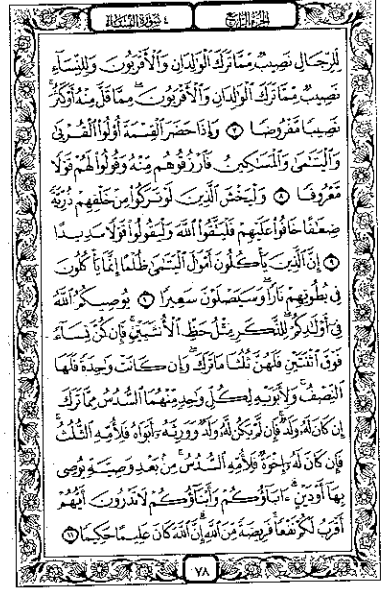 الجزء الرابع
٤ سورة النساء
لِّلرِّجَالِ نَصِيبٌ مِّمَّا تَرَكَ الْوَٰلِدَانِ وَالْأَقْرَبُونَ وَلِلنِّسَآءِ
نَصِيبٌ مِّمَّا تَرَكَ الْوَٰلِدَانِ وَالْأَقْرَبُونَ مِمَّا قَلَّ مِنْهُ أَوْ كَثُرَ
نَصِيبًا مَّفْرُوضًا ٧ وَإِذَا حَضَرَ الْقِسْمَةَ أُو۟لُوا۟ الْقُرْبَىٰ
وَالْيَتَٰمَىٰ وَالْمَسَٰكِينُ فَارْزُقُوهُم مِّنْهُ وَقُولُوا۟ لَهُمْ قَوْلًا
مَّعْرُوفًا ٨ وَلْيَخْشَ الَّذِينَ لَوْ تَرَكُوا۟ مِنْ خَلْفِهِمْ ذُرِّيَّةً
ضِعَٰفًا خَافُوا۟ عَلَيْهِمْ فَلْيَتَّقُوا۟ اللَّهَ وَلْيَقُولُوا۟ قَوْلًا سَدِيدًا
٩ إِنَّ الَّذِينَ يَأْكُلُونَ أَمْوَٰلَ الْيَتَٰمَىٰ ظُلْمًا إِنَّمَا يَأْكُلُونَ
فِى بُطُونِهِمْ نَارًا وَسَيَصْلَوْنَ سَعِيرًا ١٠ يُوصِيكُمُ اللَّهُ
فِىٓ أَوْلَٰدِكُمْ لِلذَّكَرِ مِثْلُ حَظِّ الْأُنثَيَيْنِ فَإِن كُنَّ نِسَآءً
فَوْقَ اثْنَتَيْنِ فَلَهُنَّ ثُلُثَا مَا تَرَكَ وَإِن كَانَتْ وَٰحِدَةً فَلَهَا
النِّصْفُ وَلِأَبَوَيْهِ لِكُلِّ وَٰحِدٍ مِّنْهُمَا السُّدُسُ مِمَّا تَرَكَ
إِن كَانَ لَهُۥ وَلَدٌ فَإِن لَّمْ يَكُن لَّهُۥ وَلَدٌ وَوَرِثَهُۥٓ أَبَوَاهُ فَلِأُمِّهِ الثُّلُثُ
فَإِن كَانَ لَهُۥٓ إِخْوَةٌ فَلِأُمِّهِ السُّدُسُ مِنۢ بَعْدِ وَصِيَّةٍ يُوصِى
بِهَآ أَوْ دَيْنٍ ءَابَآؤُكُمْ وَأَبْنَآؤُكُمْ لَا تَدْرُونَ أَيُّهُمْ
أَقْرَبُ لَكُمْ نَفْعًا فَرِيضَةً مِّنَ اللَّهِ إِنَّ اللَّهَ كَانَ عَلِيمًا حَكِيمًا ١١
٧٨